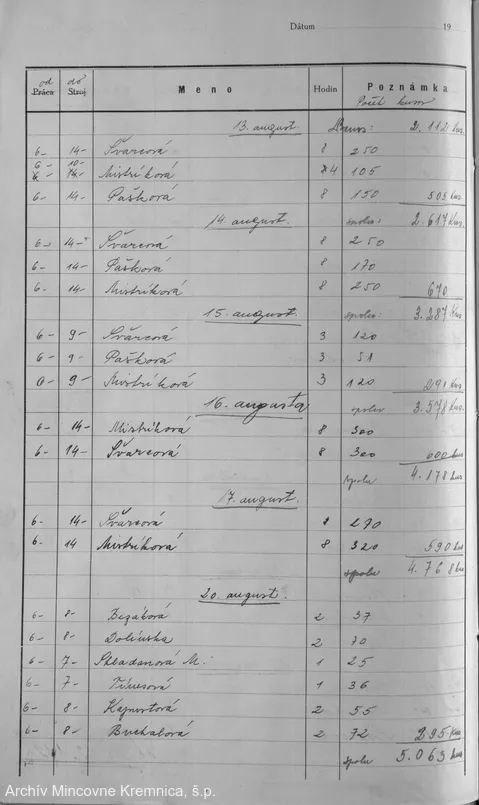 Dátum 19
od do
Práca Stroj Meno Hodin Poznámka
Počet kusov
13. august. 2.112 kus.
6- 14- Švarcová 8 250
6- 10-
6- 14- Mistríková 8 4 105
6- 14- Pašková 8 150 505 kus
14. august. spolu: 2.617 kus.
6- 14- Švarcová 8 250
6- 14- Pašková 8 170
6- 14- Mistríková 8 250 670
15. august. spolu: 3.287 kus
6- 9- Švarcová 3 120
6- 9- Pašková 3 51
6- 9- Mistríková 3 120 291 kus
16. augusta spolu 3.578 kus.
6- 14- Mistríková 8 300
6- 14- Švarcová 8 300 600 kus
spolu 4.178 kus
17. august.
6- 14- Švarcová 8 270
6- 14 Mistríková 8 320 590 kus
spolu 4.768 kus
20. august.
6- 8- Bezáková 2 37
6- 8- Dolinska 2 70
6- 7- Skladanová M. 1 25
6- 7- 1 36
6- 8- 2 55
6- 8- Buchalová 2 72 295 kus
spolu 5.063 kus
Archív Mincovne Kremnica, š.p.